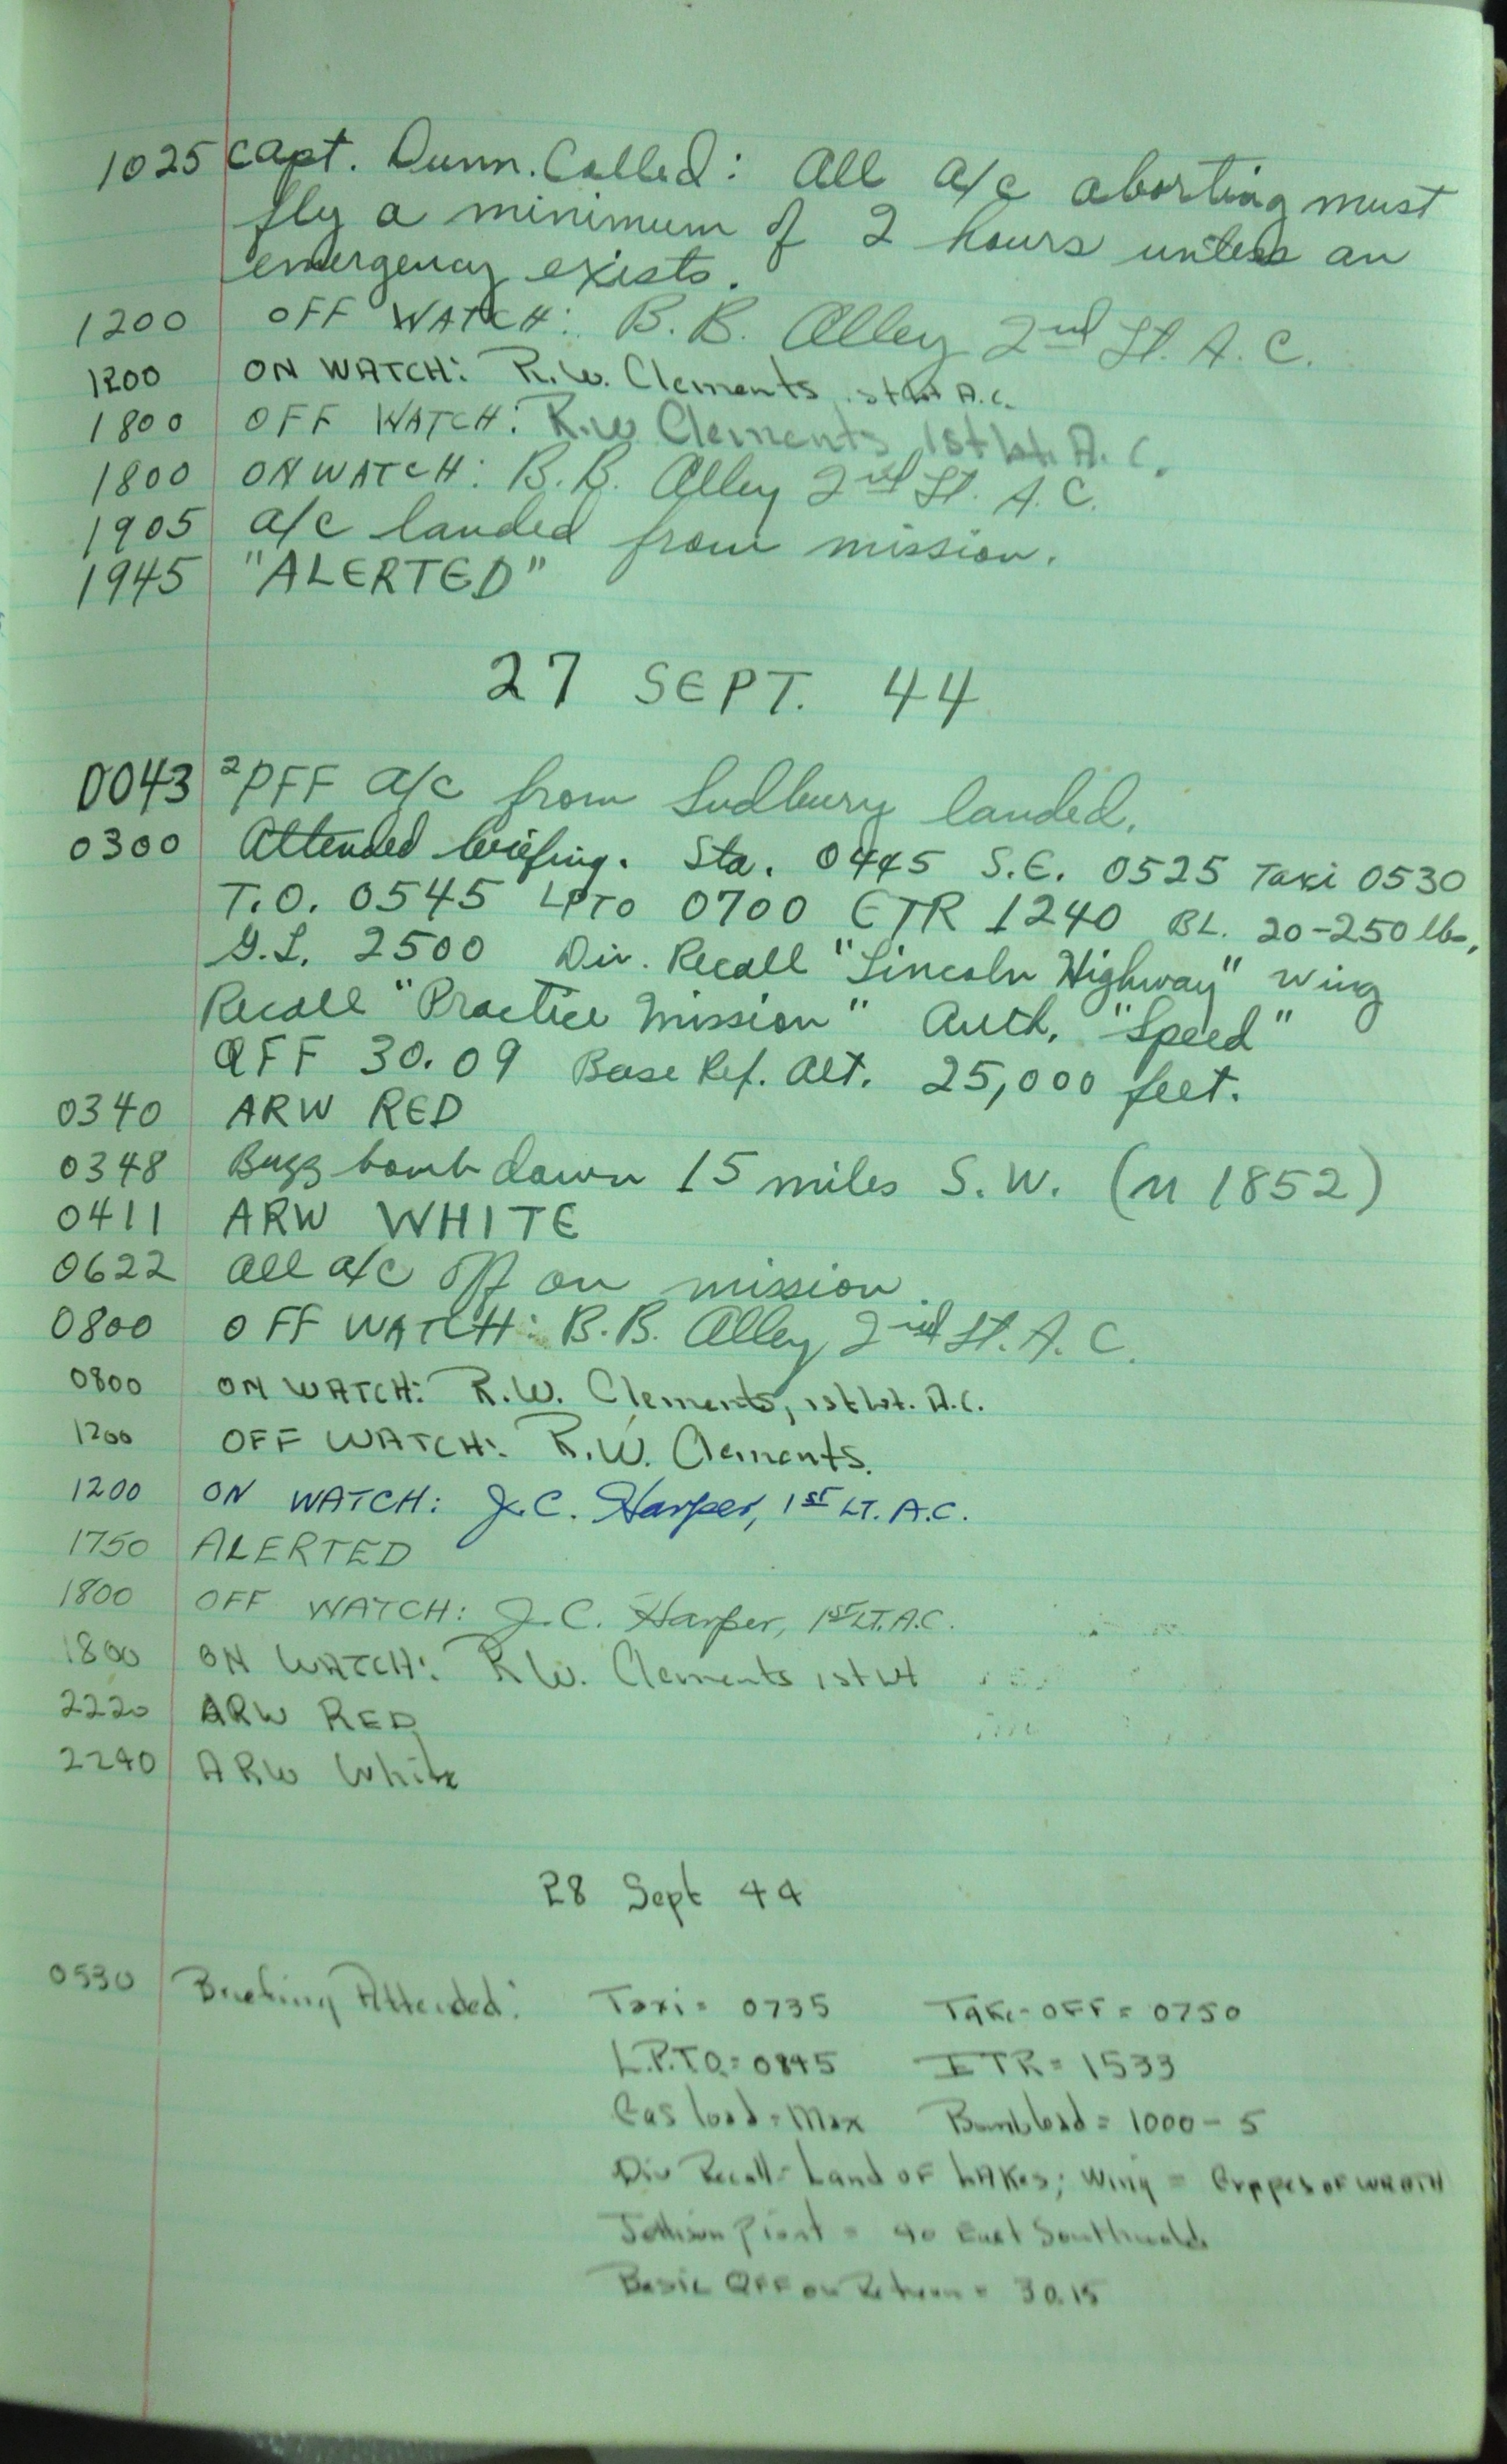 1025 Capt. Dunn. Called: All a/c aborting must
fly a minimum of 2 hours unless an
emergency exists.
1200 OFF WATCH: B. B. Alley 2nd Lt. A. C.
1200 ON WATCH: R.W. Clements, 1st Lt A.C.
1800 OFF WATCH: R.W Clements 1st Lt. A. C.
1800 ON WATCH: B. B. Alley 2nd Lt. A. C.
1905 a/c landed from mission.
1945 "ALERTED"
27 SEPT. 44
0043 2 PFF a/c from Sudbury landed.
0300 Attended briefing. Sta. 0445 S.E. 0525 Taxi 0530
T.O. 0545 LPTO 0700 ETR 1240 BL. 20-250 lbs,
G.L. 2500 Div. Recall "Lincoln Highway" Wing
Recall "Practice Mission" Auth. "Speed"
QFF 30.09 Base Ref. Alt. 25,000 feet.
0340 ARW RED
0348 Buzz bomb down 15 miles S.W. (M 1852)
0411 ARW WHITE
0622 All a/c off on mission.
0800 OFF WATCH: B.B. Alley 2nd Lt. A. C.
0800 ON WATCH: R.W. Clements, 1st Lt. A.C.
1200 OFF WATCH: R.W. Clements.
1200 ON WATCH: J.C. Harper, 1ST LT. A.C.
1750 ALERTED
1800 OFF WATCH: J.C. Harper, 1ST LT. A.C.
1800 ON WATCH: R.W. Clements 1st Lt
2220 ARW RED
2240 ARW White
28 Sept 44
0530 Briefing Attended: Taxi = 0735 TAKE-OFF = 0750
L.P.T.O. = 0845 ETR = 1533
Gas load = Max Bombload = 1000 - 5
Div Recall = Land OF LAKES; Wing = Grapes OF WRATH
Jettison Point = 40 East Southwold
Basic QFF on Return = 30.15